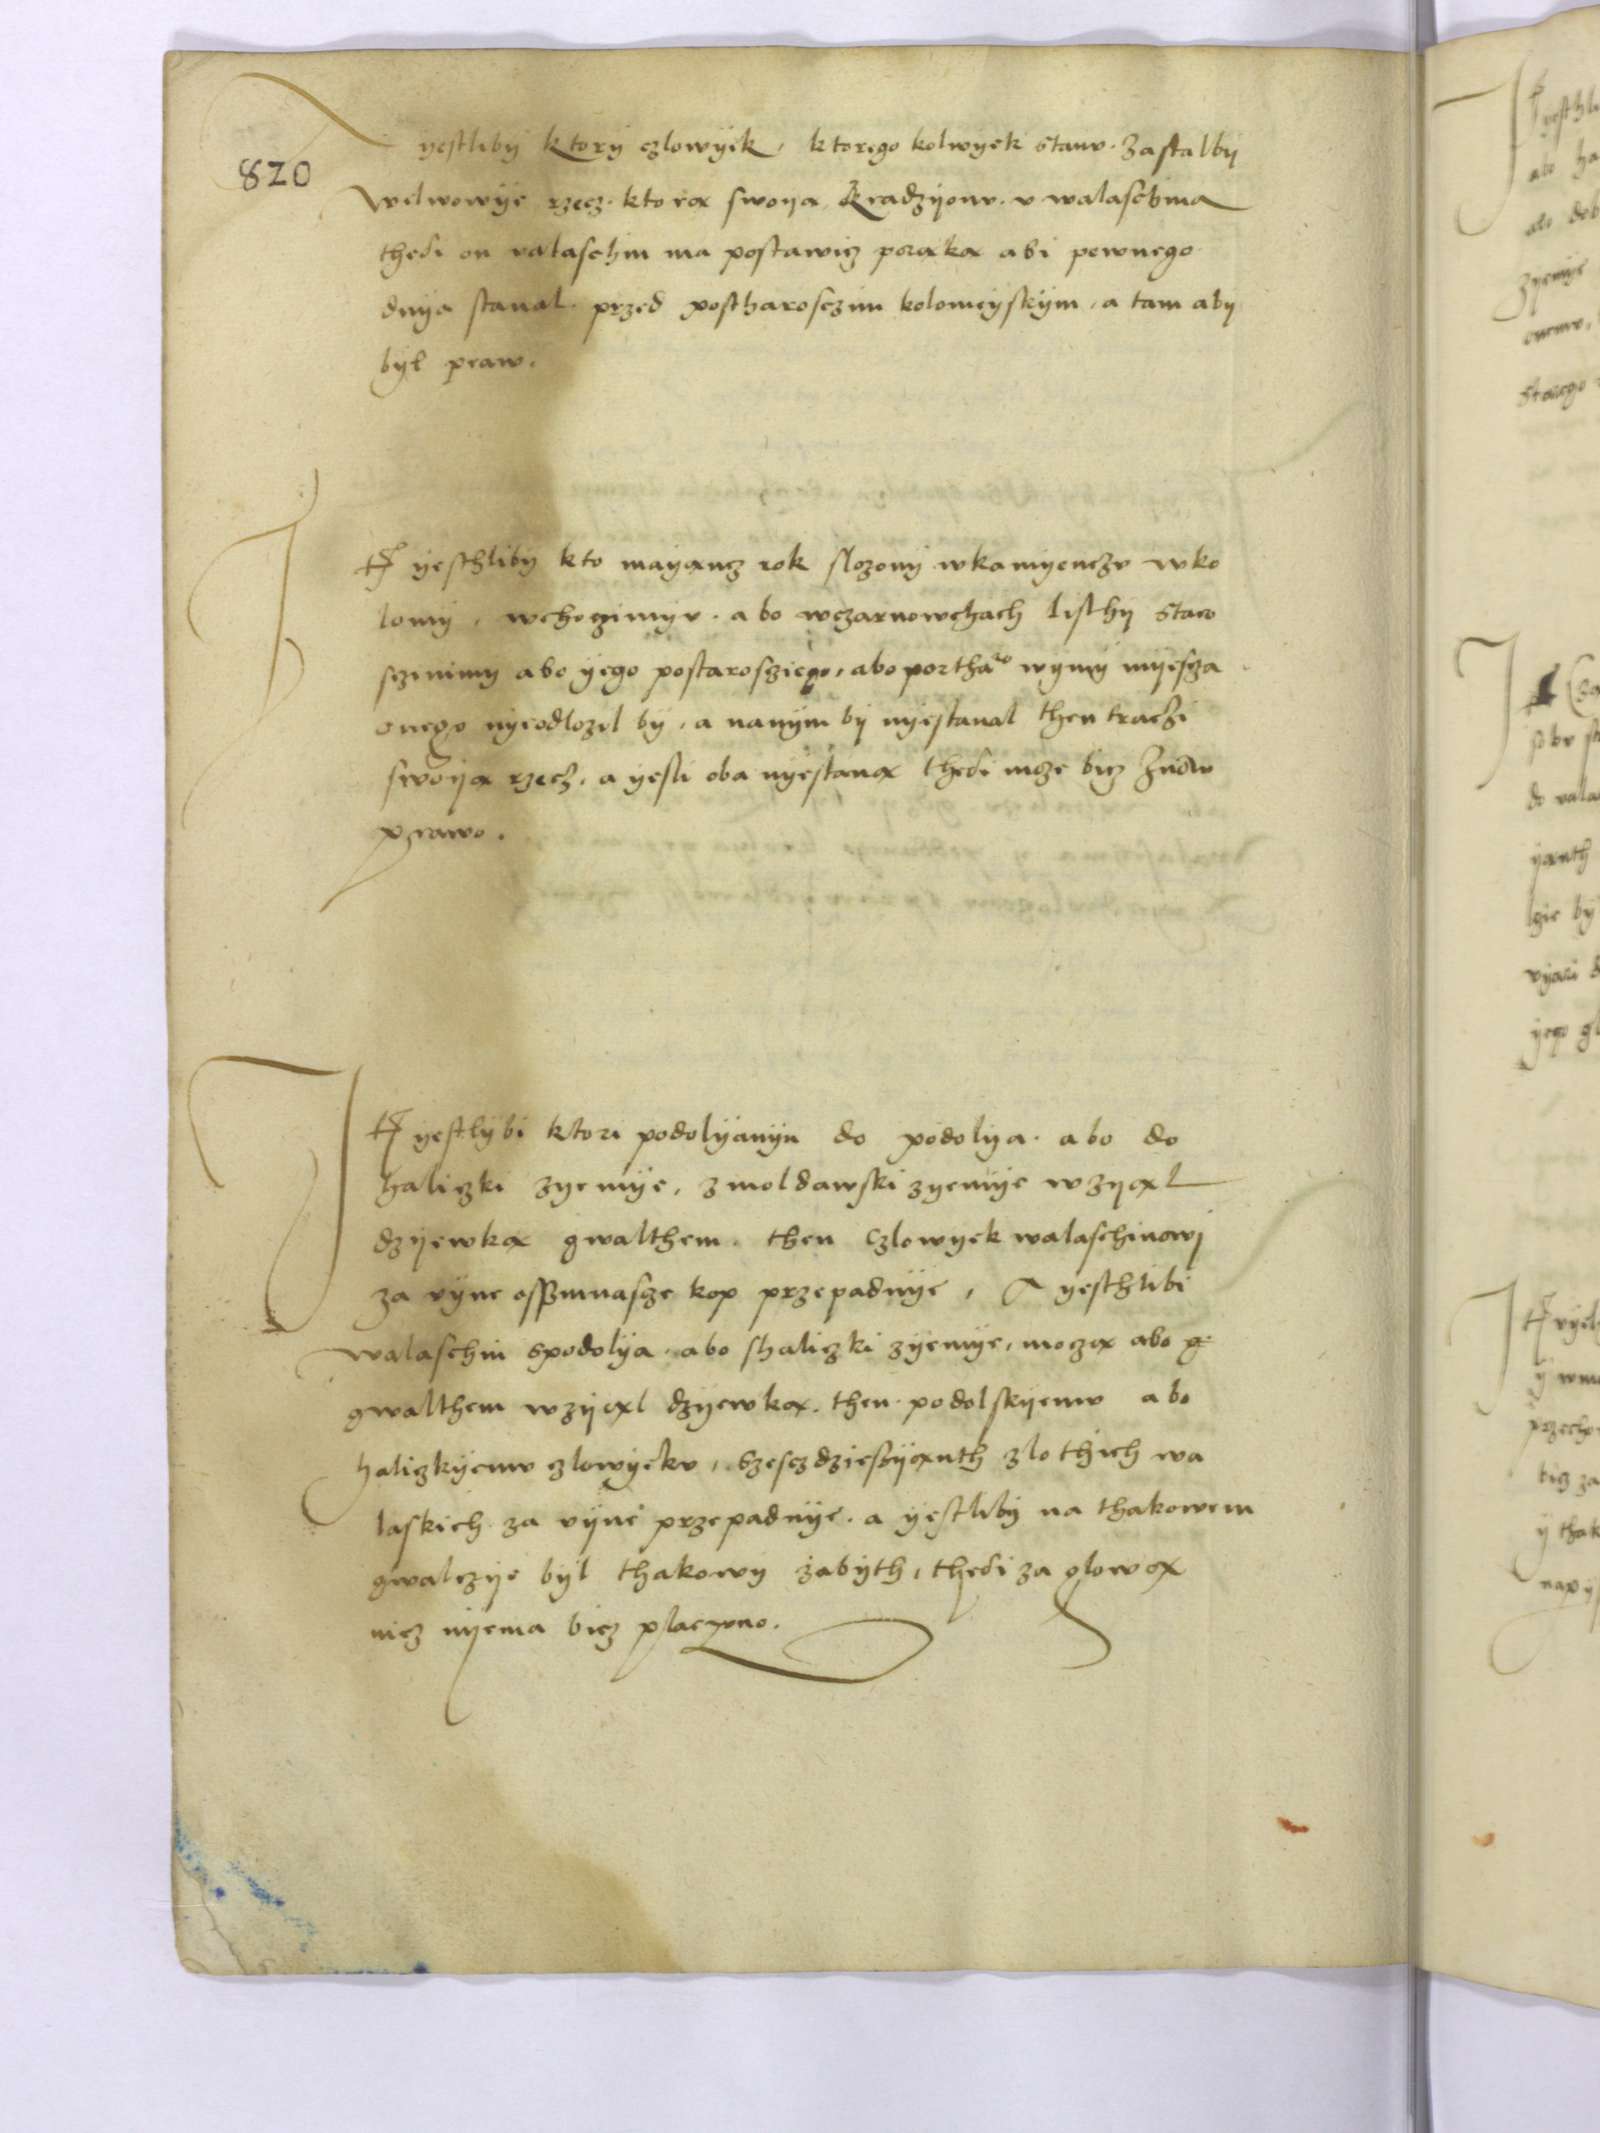 820
yestlibÿ ktorÿ czlowÿek, ktorego kolwyek stanv. zastalbÿ
welwowÿe rzecz. ktorą swoÿą kradzÿonv. v walaschina
thedi on valaschin ma postawicz porąką abi pewnego
dnÿa stanal. przed postharosczim kolomeÿskÿm, a tam abÿ
bÿl praw.
It yeschlibÿ kto mayąncz rok slozonÿ wkamyenczv wko
lomÿ, wchozimÿv. abo wczarnowczach listhÿ staro
sczinimÿ abo ÿego postarosziego, abo portharo wymÿ mÿescza
onego nÿeodlozil bÿ, a nanÿm bÿ nÿestanal then traczi
swoÿą rzecz, a yesli oba nÿestaną thedi moze bicz znow
prawo.
It yestlÿbi ktori podolÿanÿn do podolÿa. abo do
haliczki zyemÿe, zmoldawski zyemÿe wzÿąl
dzÿewką gwalthem. then czlowÿek walaschinowi
za vÿne ossmnascze kop przepadnÿe, A yeschlibi
walaschin spodolÿa. abo shaliczki zÿemÿe, moczą abo g
gwalthem wzÿąl dzÿewką. then podolskÿemv abo
haliczkÿemv czlowÿekv, szesczdziessÿąnth zlothich wa
laskich za vÿne przepadnÿe. a ÿestlibÿ na thakowem
gwalczÿe bÿl thakowÿ zabÿth, thedi za glową
nicz nÿema bicz placzono.